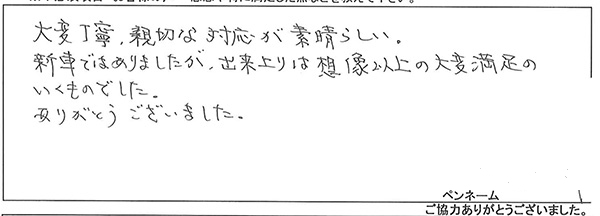 大変丁寧、親切な対応が素晴らしい。
新車ではありましたが、出来上りは想像以上の大変満足の
いくものでした。
ありがとうございました。
ペンネーム
ご協力ありがとうございました。